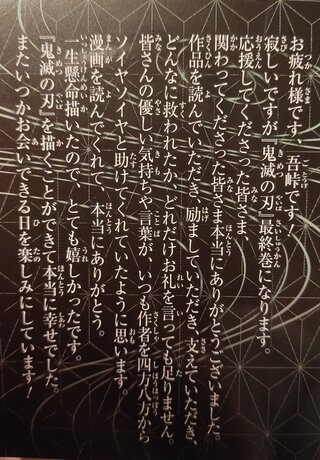 お疲れ様です、吾峠です！
寂しいですが『鬼滅の刃』最終巻になります。
応援してくださった皆さま、
関わってくださった皆さま本当にありがとうございました。
作品を読んでいただき、励ましていただき、支えていただき、
どんなに救われたか、どれだけお礼を言っても足りません。
皆さんの優しい気持ちや言葉が、いつも作者を四方八方から
ソイヤソイヤと助けてくれていたように思います。
漫画を読んでくれて、本当にありがとう。
一生懸命描いたので、とても嬉しかったです。
『鬼滅の刃』を描くことができて本当に幸せでした。
またいつかお会いできる日を楽しみにしています！